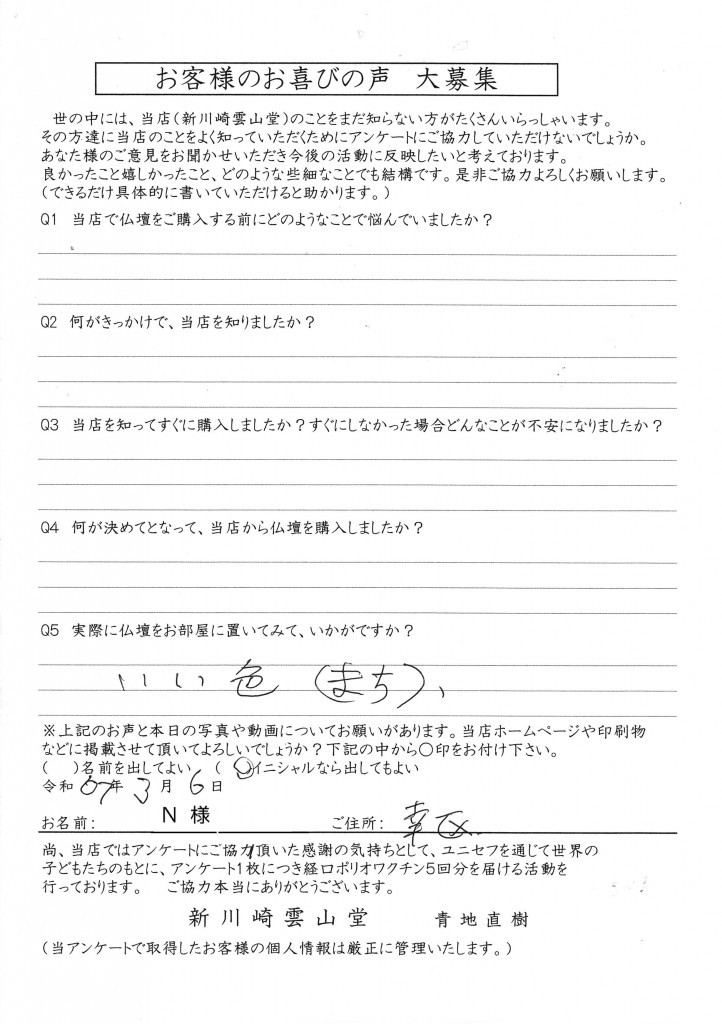 お客様のお喜びの声 大募集
世の中には、当店(新川崎雲山堂)のことをまだ知らない方がたくさんいらっしゃいます。
その方達に当店のことをよく知っていただくためにアンケートにご協力していただけないでしょうか。
あなた様のご意見をお聞かせいただき今後の活動に反映したいと考えております。
良かったこと嬉しかったこと、どのような些細なことでも結構です。是非ご協力よろしくお願いします。
(できるだけ具体的に書いていただけると助かります。)
Q1 当店で仏壇をご購入する前にどのようなことで悩んでいましたか?
Q2 何がきっかけで、当店を知りましたか?
Q3 当店を知ってすぐに購入しましたか?すぐにしなかった場合どんなことが不安になりましたか?
Q4 何が決めてとなって、当店から仏壇を購入しましたか?
Q5 実際に仏壇をお部屋に置いてみて、いかがですか?
いい色(まち)、
※上記のお声と本日の写真や動画についてお願いがあります。当店ホームページや印刷物
などに掲載させて頂いてよろしいでしょうか?下記の中から○印をお付け下さい。
( )名前を出してよい (○)イニシャルなら出してもよい
令和 07年 3月 6日
お名前: N 様 ご住所: 幸区
尚、当店ではアンケートにご協力頂いた感謝の気持ちとして、ユニセフを通じて世界の
子どもたちのもとに、アンケート1枚につき経口ポリオワクチン5回分を届ける活動を
行っております。 ご協力本当にありがとうございます。
新川崎雲山堂 青地直樹
(当アンケートで取得したお客様の個人情報は厳正に管理いたします。)